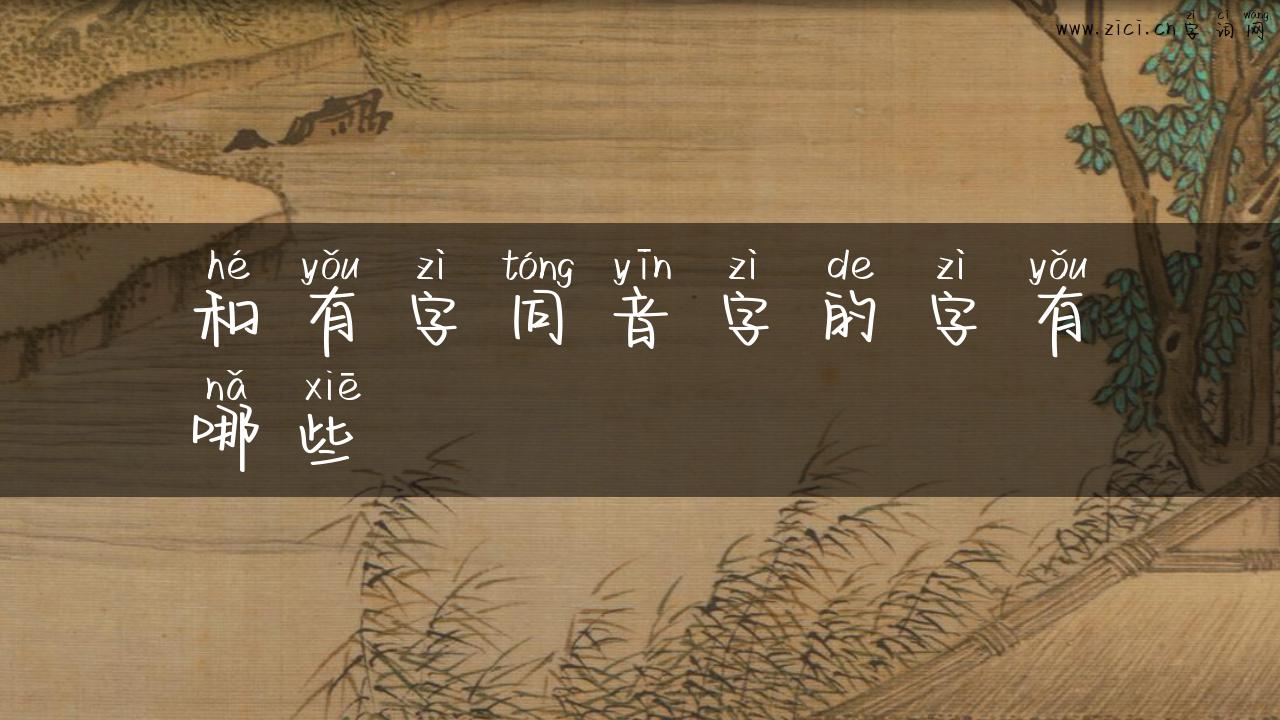 zì cí wǎng
www.zici.cn字词网
hé yǒu zì tóng yīn zì de zì yǒu
和有字同音字的字有
nǎ xiē
哪些